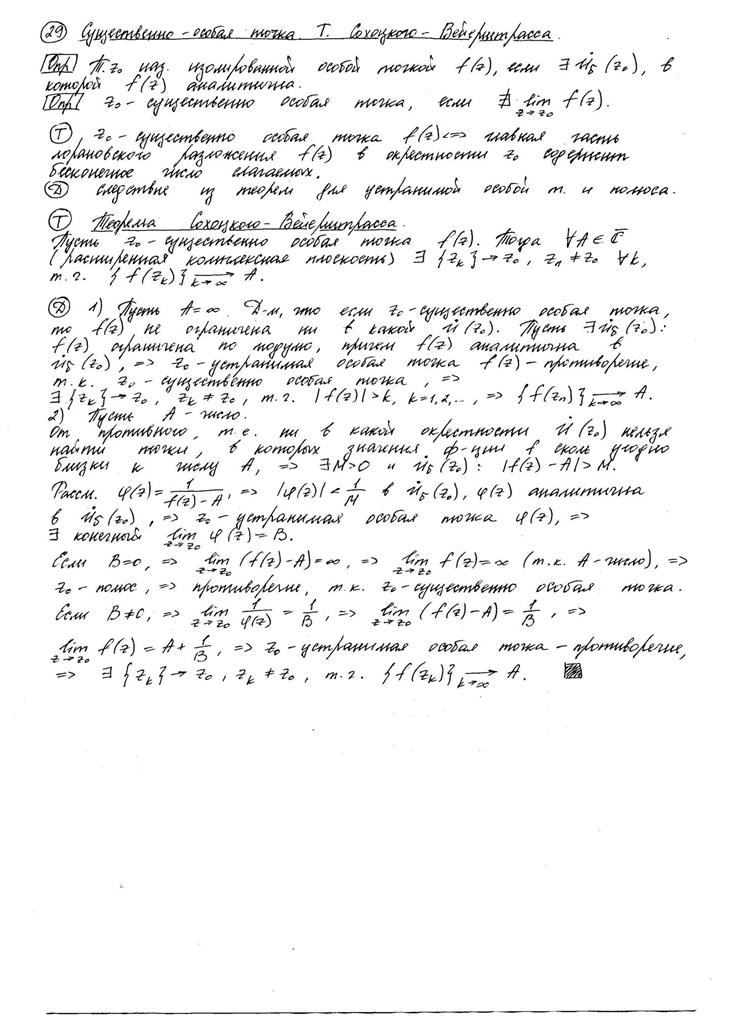 29 Существенно-особая точка. Т. Сохоцкого-Вейерштрасса.
Опр Т. z₀ наз. изолированной особой точкой f(z), если ∃ u̇_δ(z₀), в
которой f(z) аналитична.
Опр z₀ - существенно особая точка, если ∄ lim_{z→z₀} f(z).
Т, z₀ - существенно особая точка f(z) <=> главная часть
лорановского разложения f(z) в окрестности z₀ содержит
бесконечное число слагаемых.
Д следствие из теорем для устранимой особой т. и полюса.
Т Теорема Сохоцкого-Вейерштрасса.
Пусть z₀ - существенно особая точка f(z). Тогда ∀A ∈ ℂ̅
(расширенная комплексная плоскость) ∃ {z_k} → z₀, z_n ≠ z₀ ∀k,
т.ч. {f(z_k)} →_{k→∞} A.
Д 1) Пусть A=∞. Д-м, что если z₀ - существенно особая точка,
то f(z) не ограничена ни в какой u̇(z₀). Пусть ∃ u̇_δ(z₀):
f(z) ограничена по модулю, причем f(z) аналитична в
u̇_δ(z₀), => z₀ - устранимая особая точка f(z) - противоречие,
т.к. z₀ - существенно особая точка, =>
∃ {z_k} → z₀, z_k ≠ z₀, т.ч. |f(z)| > k, k=1,2,..., => {f(z_n)} →_{k→∞} A.
2) Пусть A - число.
От противного, т.е. ни в какой окрестности u̇(z₀) нельзя
найти точки, в которых значения ф-ции f сколь угодно
близки к числу A, => ∃M>0 и u̇_δ(z₀): |f(z)-A| > M.
Рассм. φ(z) = 1/(f(z)-A), => |φ(z)| < 1/M в u̇_δ(z₀), φ(z) аналитична
в u̇_δ(z₀), => z₀ - устранимая особая точка φ(z), =>
∃ конечный lim_{z→z₀} φ(z) = B.
Если B=0, => lim_{z→z₀} (f(z)-A) = ∞, => lim_{z→z₀} f(z) = ∞ (т.к. A - число), =>
z₀ - полюс, => противоречие, т.к. z₀ - существенно особая точка.
Если B≠0, => lim_{z→z₀} 1/φ(z) = 1/B, => lim_{z→z₀} (f(z)-A) = 1/B, =>
lim_{z→z₀} f(z) = A + 1/B, => z₀ - устранимая особая точка - противоречие,
=> ∃ {z_k} → z₀, z_k ≠ z₀, т.ч. {f(z_k)} →_{k→∞} A.